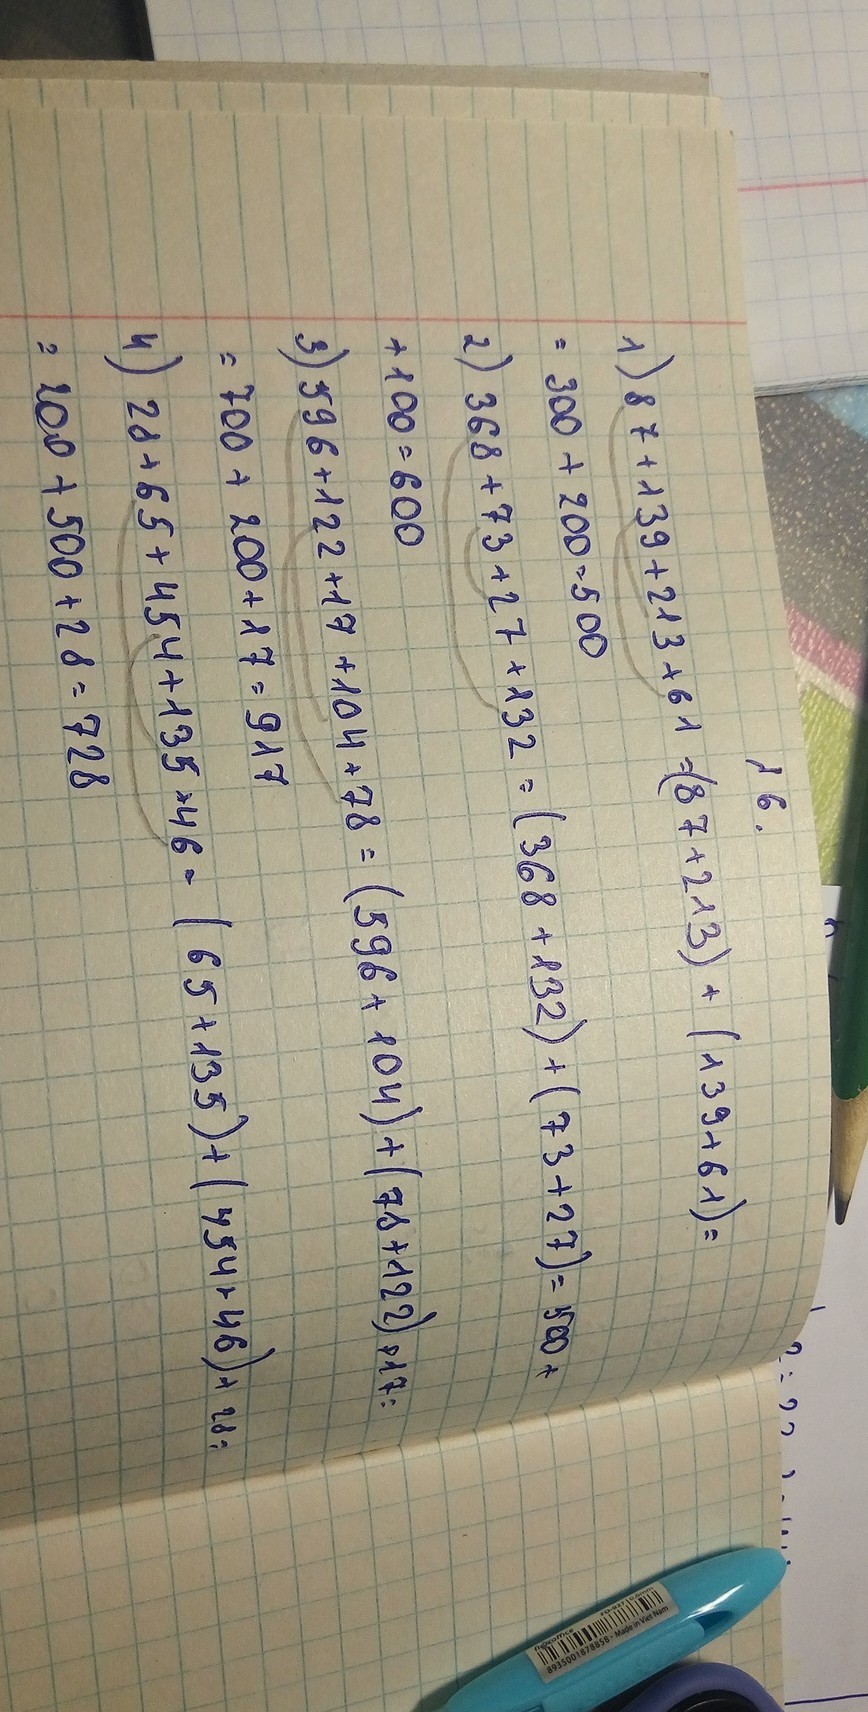 16.
1) 87+139+213+61=(87+213)+(139+61)=
=300+200=500
2) 368+73+27+132=(368+132)+(73+27)=500+
+100=600
3) 596+122+17+104+78=(596+104)+(78+122)+17=
=700+200+17=917
4) 28+65+454+135+46=(65+135)+(454+46)+28=
=200+500+28=728
flexoffice
8935001878858 - Made in Viet Nam